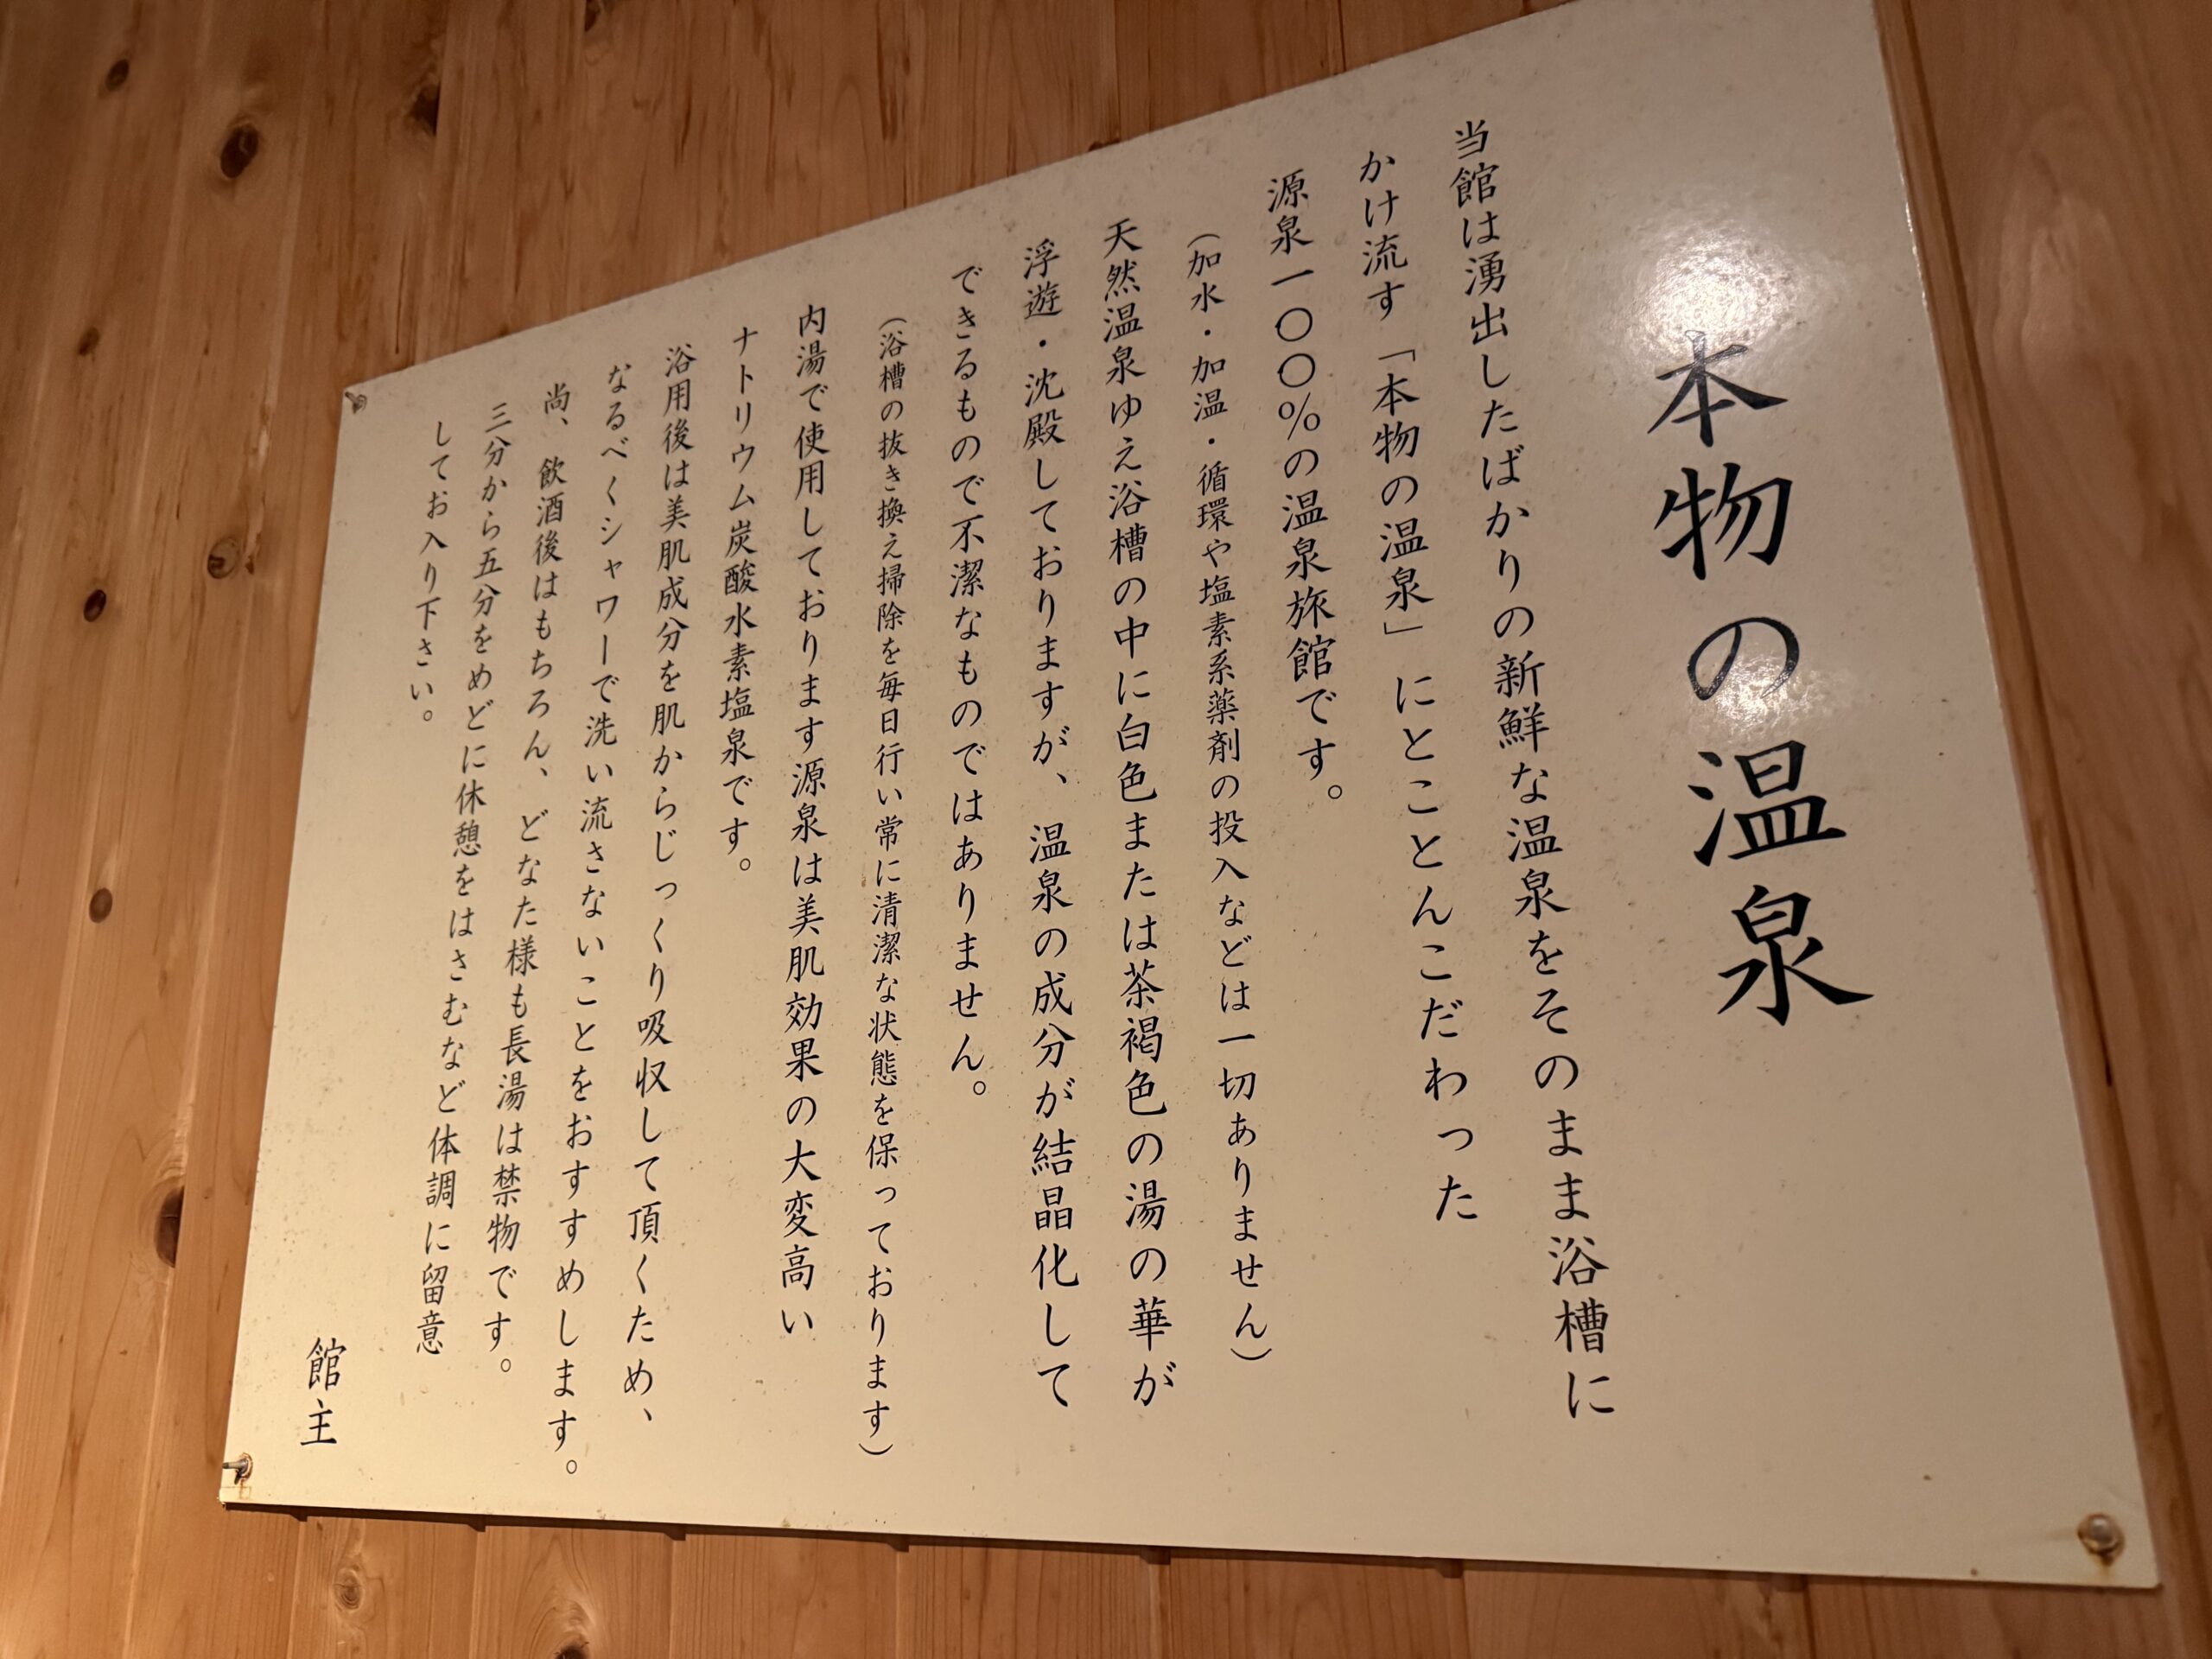 本物の温泉
当館は湧出したばかりの新鮮な温泉をそのまま浴槽に
かけ流す「本物の温泉」にとことんこだわった
源泉一〇〇%の温泉旅館です。
(加水・加温・循環や塩素系薬剤の投入などは一切ありません)
天然温泉ゆえ浴槽の中に白色または茶褐色の湯の華が
浮遊・沈殿しておりますが、温泉の成分が結晶化して
できるもので不潔なものではありません。
(浴槽の抜き換え掃除を毎日行い常に清潔な状態を保っております)
内湯で使用しております源泉は美肌効果の大変高い
ナトリウム炭酸水素塩泉です。
浴用後は美肌成分を肌からじっくり吸収して頂くため、
なるべくシャワーで洗い流さないことをおすすめします。
尚、飲酒後はもちろん、どなた様も長湯は禁物です。
三分から五分をめどに休憩をはさむなど体調に留意
してお入り下さい。
館主